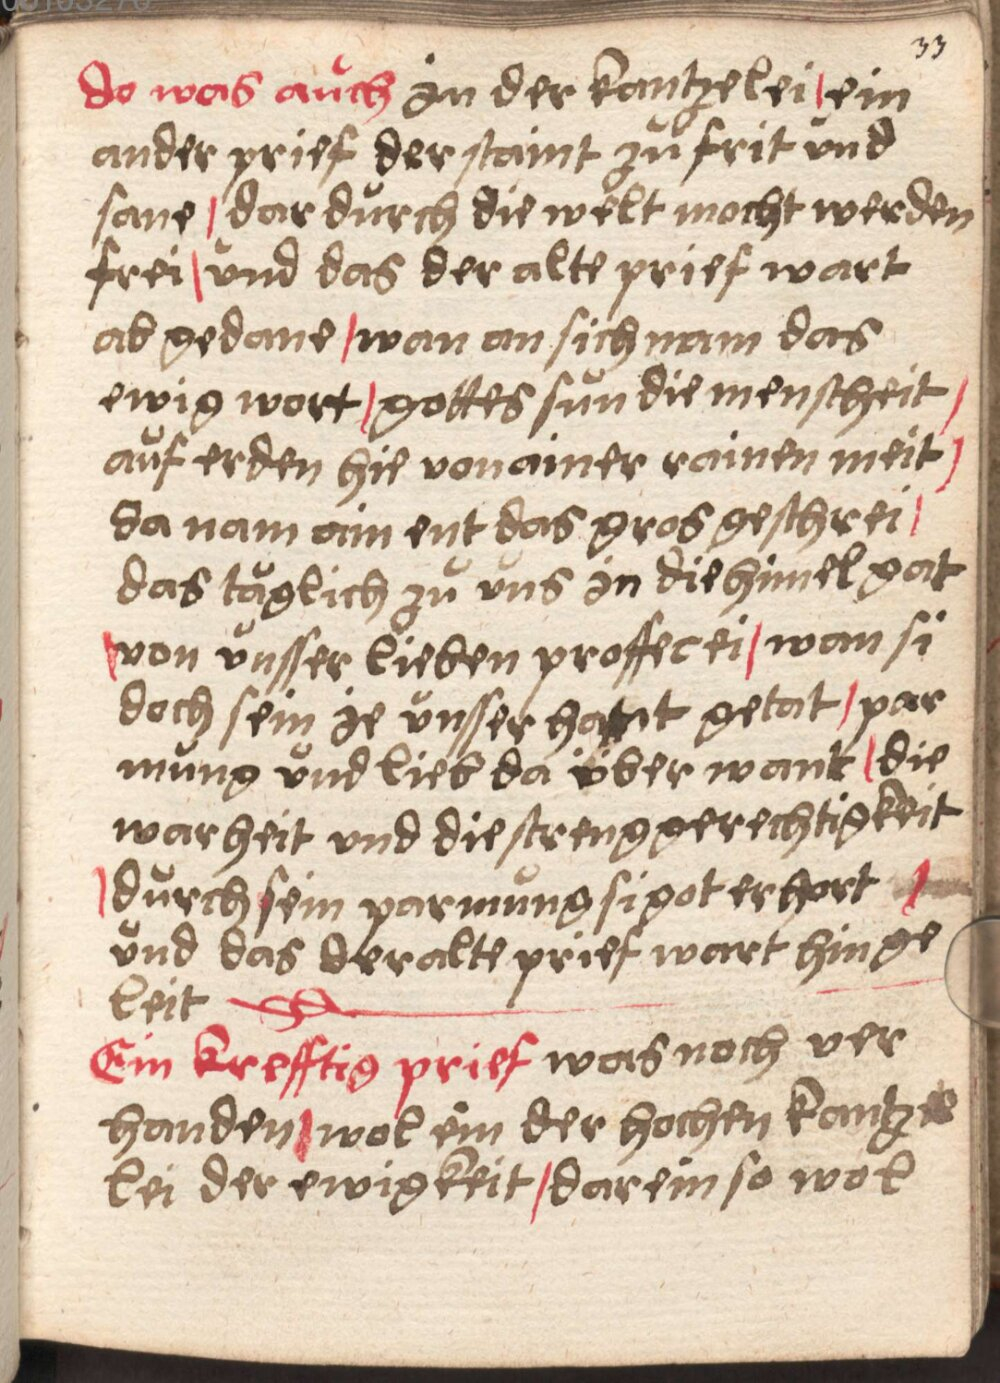 33
do was aŭch in der kantzelei / ein
ander prief der staint zŭ frit ŭnd
sane / dar dŭrch die welt mocht werden
frei / ŭnd das der alte prief wart
ab gedane / wan an sich nam das
ewig wort / gottes sŭn die menscheit /
aŭf erden hie von ainer rainen meit /
da nam ain ent das gros geschrei /
das täglich zŭ ŭns in die himel gat
/ von ŭnsser lieben proffecei / wan si
doch sein je ŭnsser hant getat / par
mŭng ŭnd lieb da über want / die
warheit ŭnd die strenggerechtigkeit
/ dŭrch sein parmŭng si got erhort /
ŭnd das der alte prief wart hin ge
leit
Ein krefftig prief was noch ver
handen / wol ein der hochen kantze
lei der ewigkeit / darein so wol